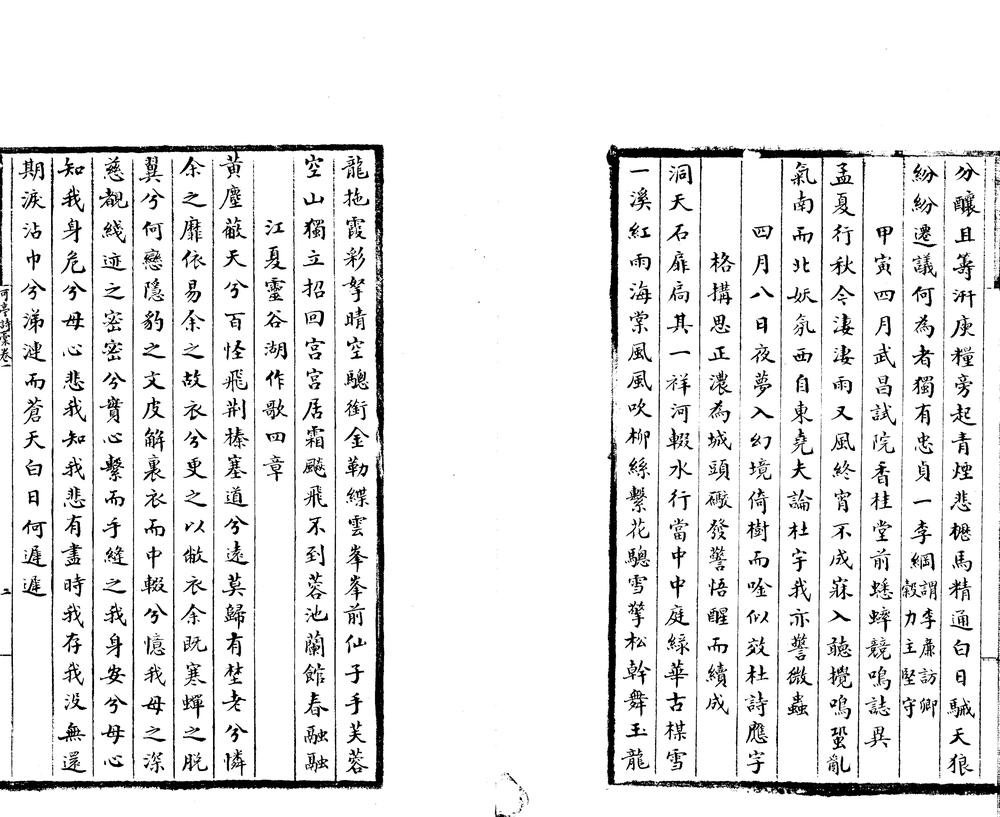 分釀且籌汧庚糧旁起青煙悲櫪馬精通白日馘天狼
紛紛遷議何為者獨有忠貞一李綱謂李廉訪卿穀力主堅守
甲寅四月武昌試院香桂堂前蟋蟀競鳴誌異
孟夏行秋令淒淒雨又風終宵不成寐入聽攪鳴蛩亂
氣南而北妖氛西自東堯夫論杜宇我亦警微蟲
四月八日夜夢入幻境倚樹而唫似效杜詩應字
格搆思正濃為城頭礮發警悟醒而續成
洞天石扉扃其一祥河輟水行當中中庭綠華古楳雪
一溪紅雨海棠風風吹柳絲繫花驄雪擎松幹舞玉龍
龍拖霞彩孥晴空驄銜金勒緤雲峯峯前仙子手芙蓉
空山獨立招回宮宮居霜飈飛不到蓉池蘭館春融融
江夏靈谷湖作歌四章
黃塵蔽天兮百怪飛荆榛塞道兮遠莫歸有埜老兮憐
余之靡依易余之故衣兮更之以敝衣余既寒蟬之脫
翼兮何戀隱豹之文皮解裏衣而中輟兮憶我母之深
慈覩綫迹之密密兮實心繫而手縫之我身安兮母心
知我身危兮母心悲我知我悲有盡時我存我没無還
期淚沾巾兮涕漣而蒼天白日何遲遲
可亭詩稾卷一